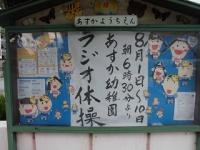 あすかようちえん
8月1日〜10日
朝6時30分より
あすか幼稚園
ラジオ体操